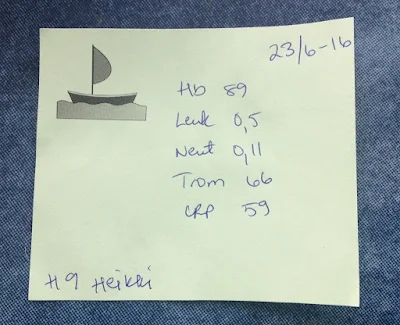 23/6-16
Hb 89
Leuk 0,5
Neut 0,11
Trom 66
CRP 59
H9 Heikki